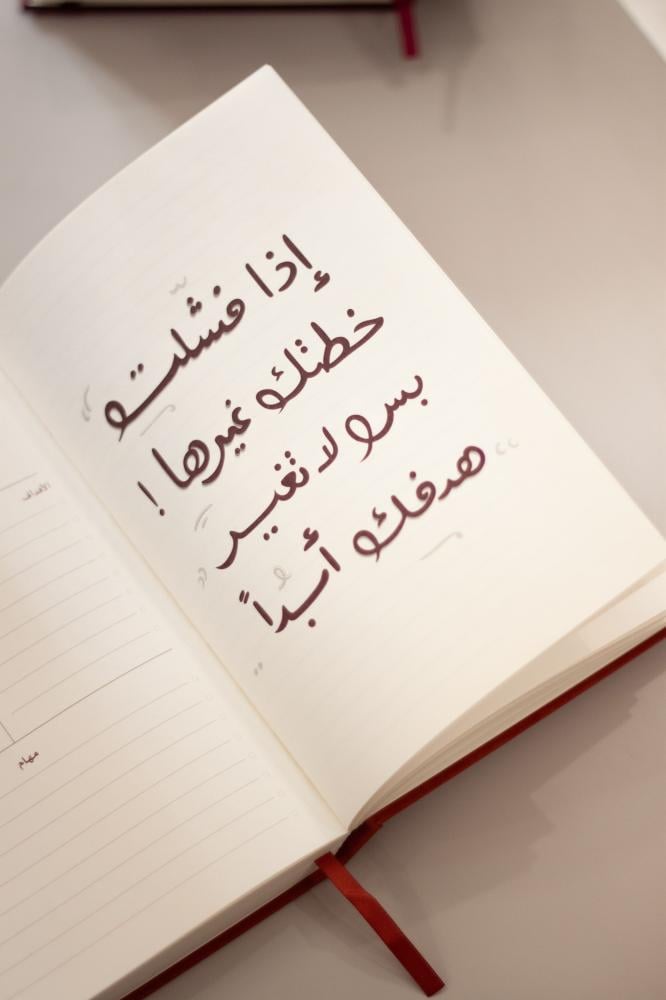 إذا فشلت
خطتك غيرها!
بس لا تغير
هدفك أبداً
الأهداف
مهام